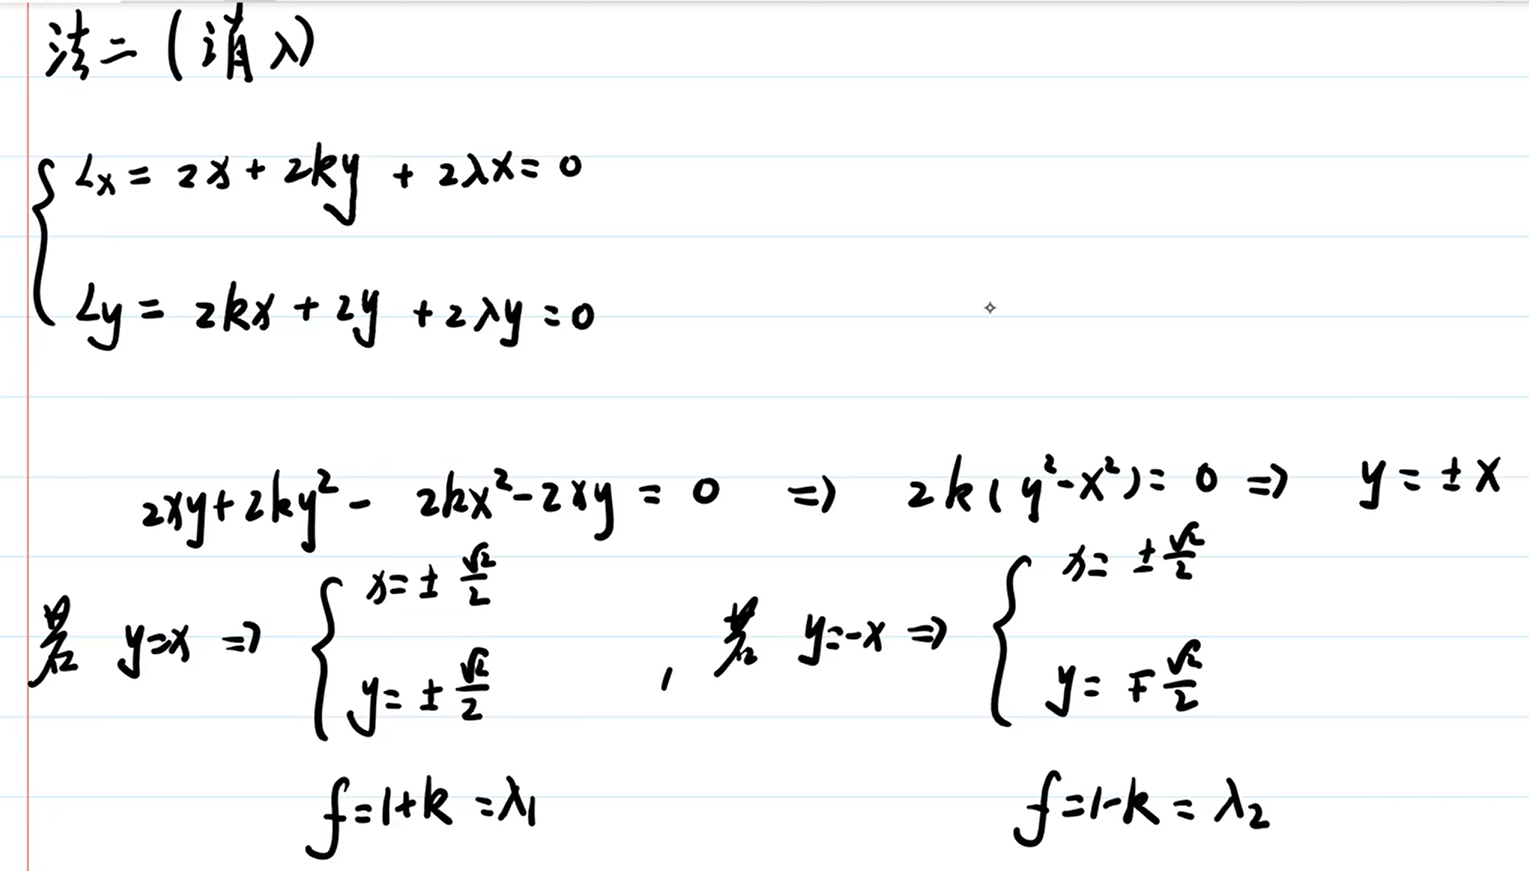 法二(消λ)
{ Lx = 2x + 2ky + 2λx = 0
Ly = 2kx + 2y + 2λy = 0
2xy + 2ky² - 2kx² - 2xy = 0 ⇒ 2k(y² - x²) = 0 ⇒ y = ±x
若 y=x ⇒ { x = ± √2/2 , y = ± √2/2 , 若 y=-x ⇒ { x = ± √2/2 , y = ∓ √2/2
f = 1+k = λ1 f = 1-k = λ2